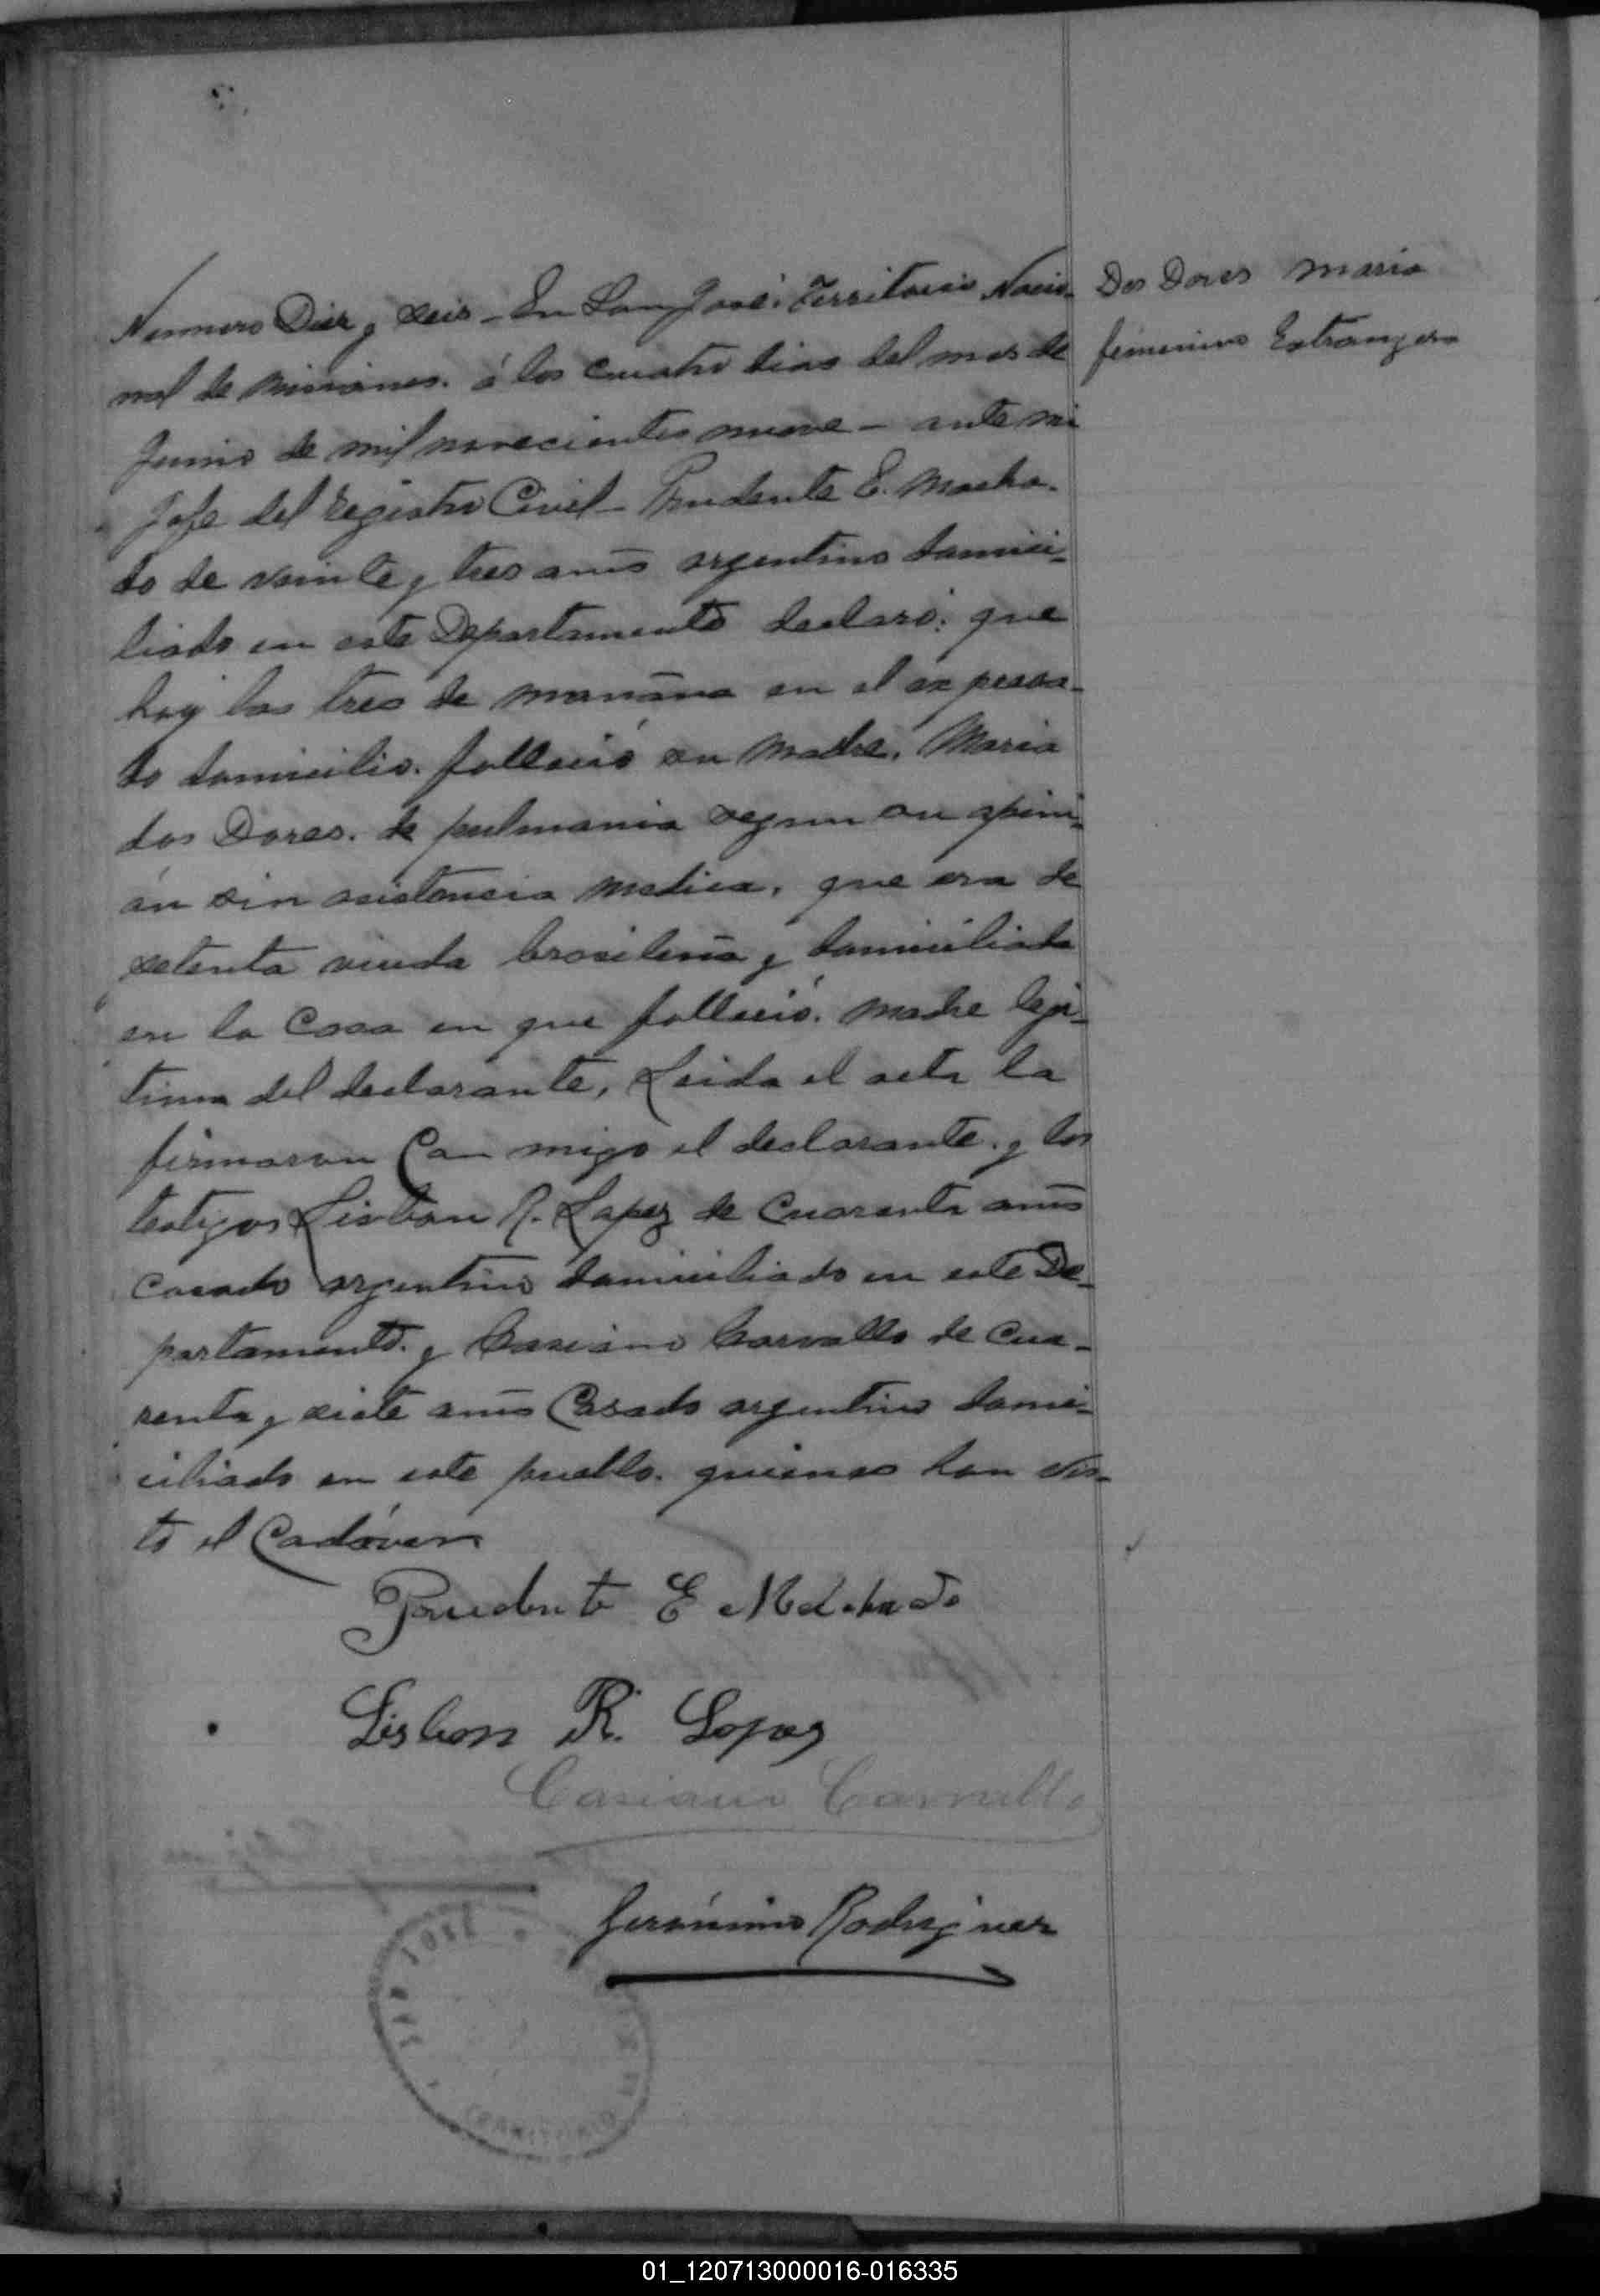 Dos Dores Maria
femenino Extrangera
Nummero Diez y seis - En San José. Territorio Nacio-
nal de Misiones. á los cuatro dias del mes de
Junio de mil novecientos nueve - ante mi
Jefe del Registro Civil - Prudente E. Macha-
do de veinte y tres anõs argentino domici-
liado en este Departamento declaró: que
hoy las tres de manãna en el expresa-
do domicilio. falleció su Madre. Maria
dos Dores. de pulmania segun su opini-
ón sin asistencia medica, que era de
setenta viuda brasilenã y domiciliada
en la Casa en que fallecio. madre leji-
tima del declarante, Leida el acta la
firmaron Con migo el declarante. y los
testigos Lisbon R. Lopez de Cuarenta anõs
casado argentino domiciliado en este De-
partamento. y Casiano Carvallo de Cua-
renta y siete anõs Casado argentino domi-
ciliado en este pueblo. quienes han vis-
to el Cadáver
Prudente E Machado
Lisbon R. Lopez
Casiano Carvallo
Gerónimo Rodriguez
SAN JOSE
TERRITORIO
01_120713000016-016335